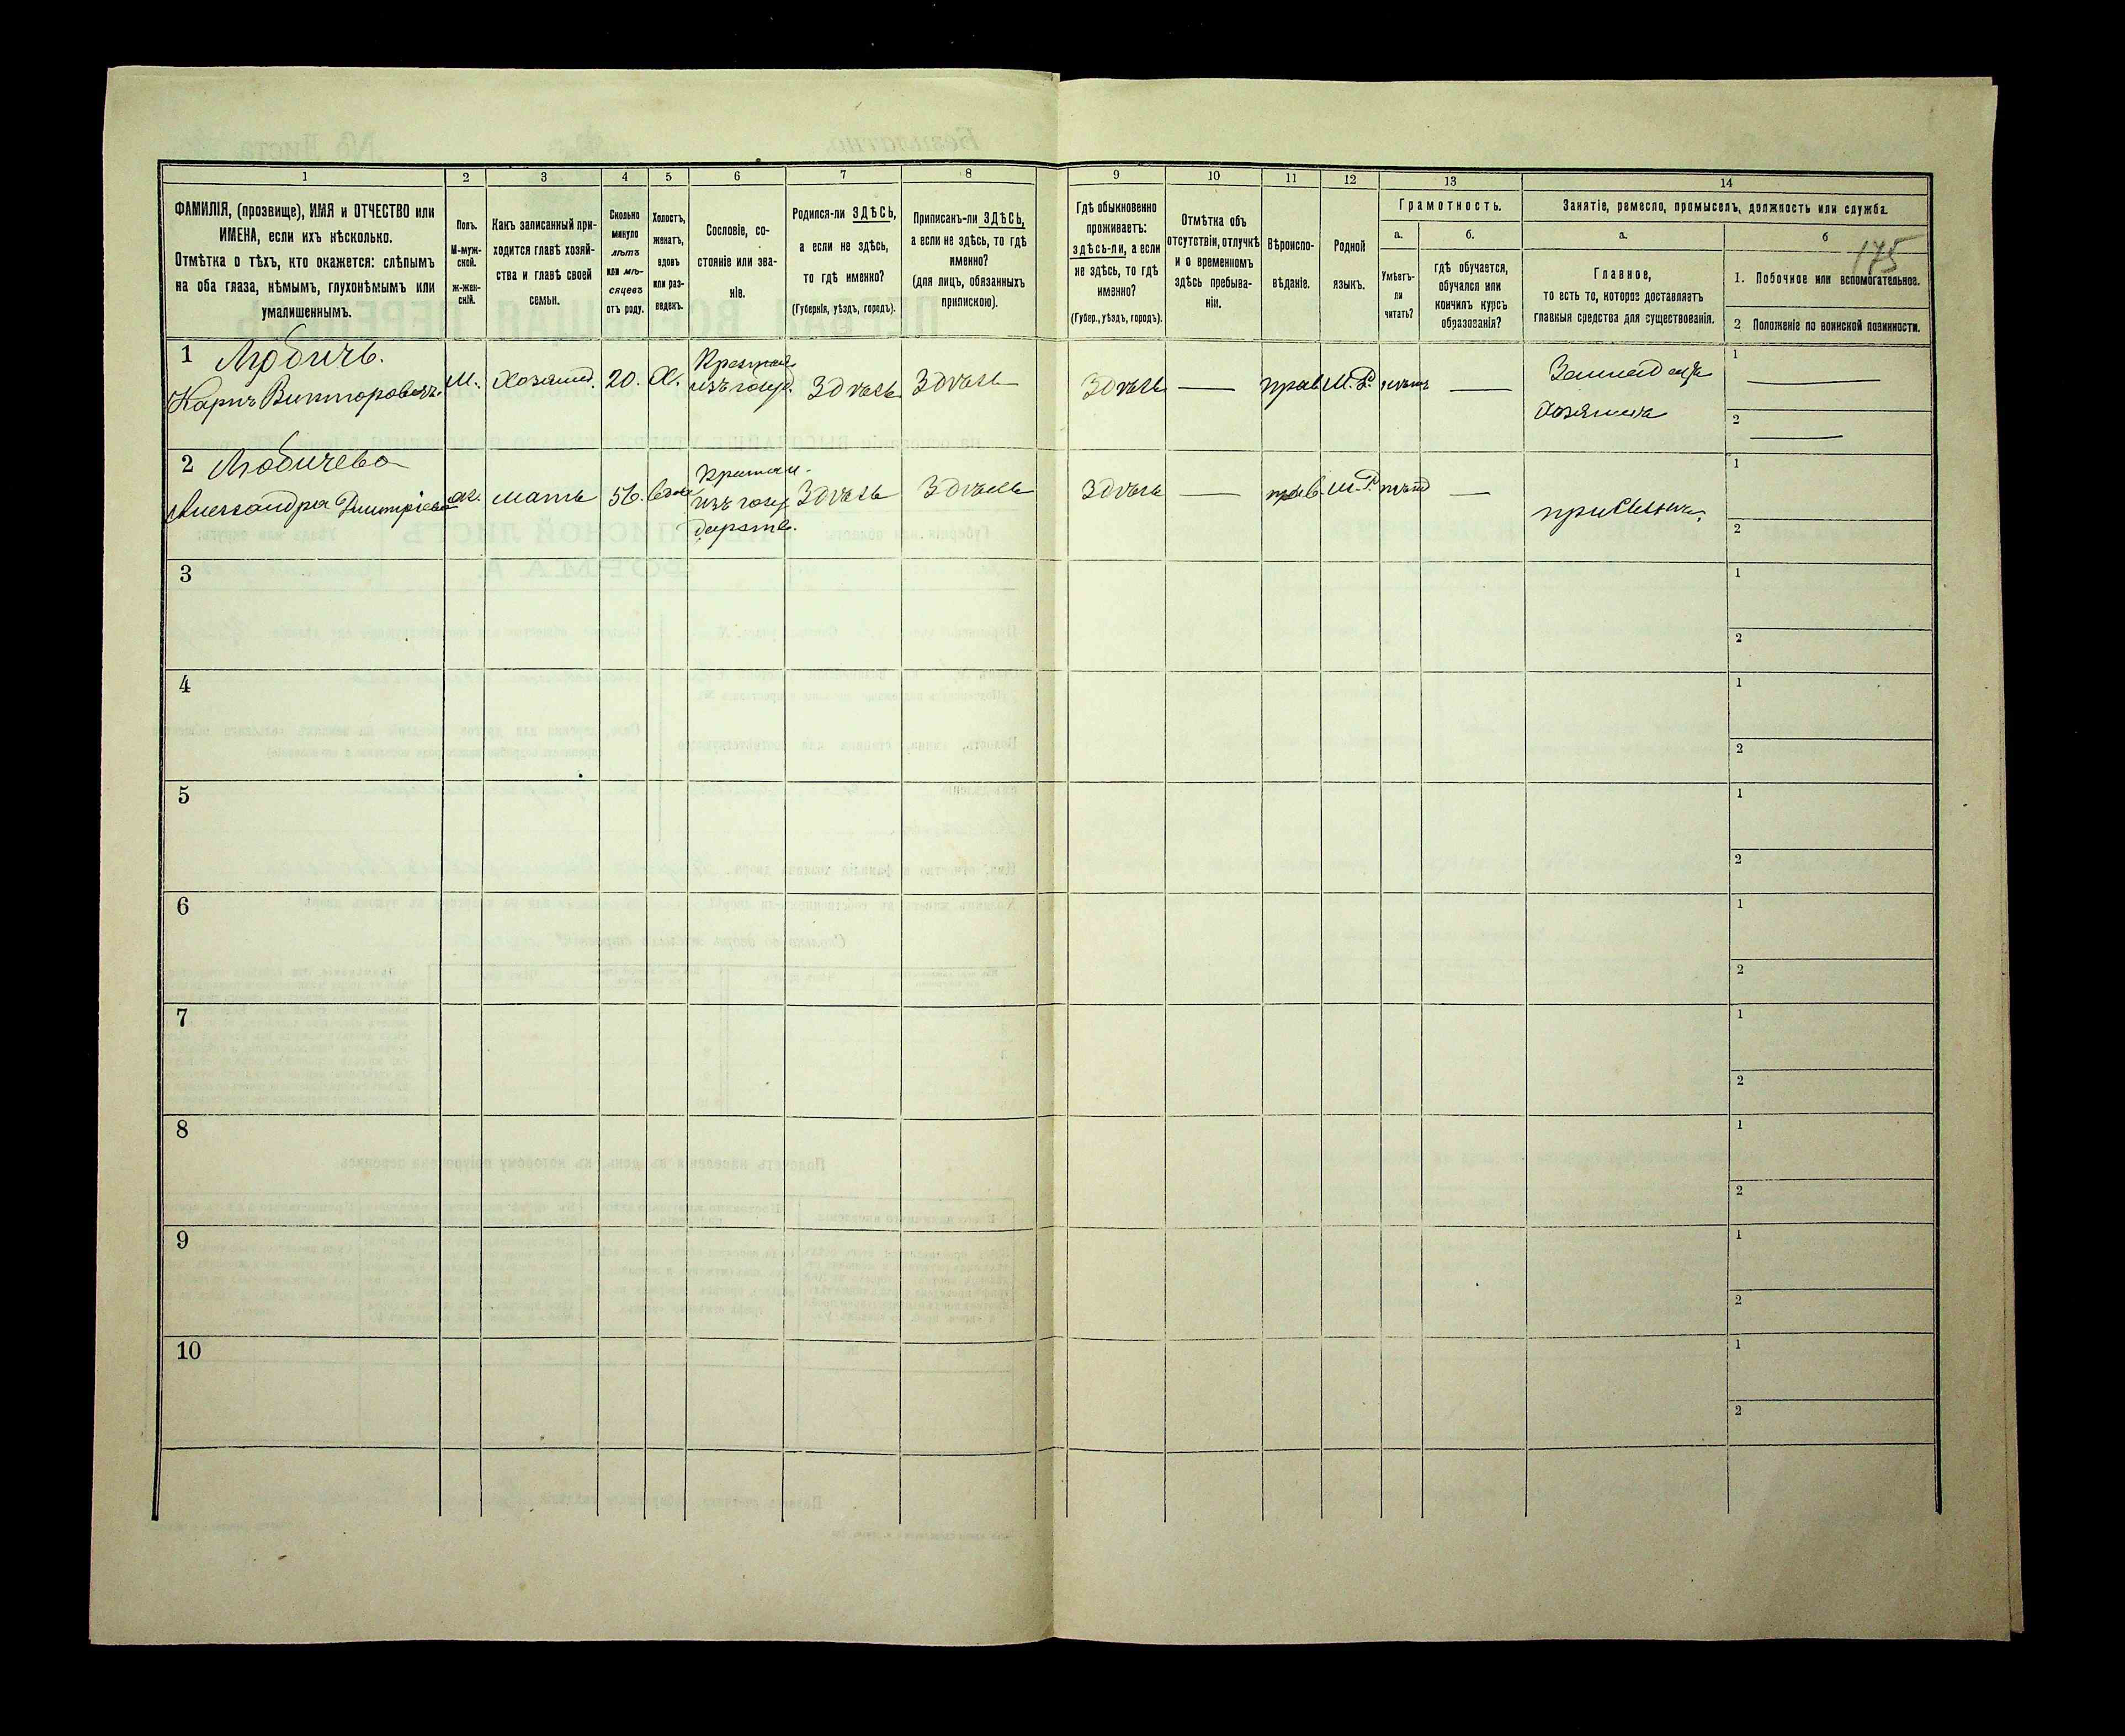 1 2 3 4 5 6 7 8 9 10 11 12 13 14
ФАМИЛІЯ, (прозвище), ИМЯ и ОТЧЕСТВО или
ИМЕНА, если ихъ нѣсколько.
Отмѣтка о тѣхъ, кто окажется: слѣпымъ
на оба глаза, нѣмымъ, глухонѣмымъ или
умалишеннымъ.
Полъ.
М-муж-
ской.
Ж-жен-
скій.
Какъ записанный при-
ходится главѣ хозяй-
ства и главѣ своей
семьи.
Сколько
минуло
лѣтъ
или мѣ-
сяцевъ
отъ роду.
Холостъ,
женатъ,
вдовъ
или раз-
веденъ.
Сословіе, со-
стояніе или зва-
ніе.
Родился-ли ЗДѢСЬ,
а если не здѣсь,
то гдѣ именно?
(Губернія, уѣздъ, городъ).
Приписанъ-ли ЗДѢСЬ,
а если не здѣсь, то гдѣ
именно?
(для лицъ, обязанныхъ
припискою).
Гдѣ обыкновенно
проживаетъ:
здѣсь-ли, а если
не здѣсь, то гдѣ
именно?
(Губер., уѣздъ, городъ).
Отмѣтка объ
отсутствіи, отлучкѣ
и о временномъ
здѣсь пребыва-
ніи.
Вѣроиспо-
вѣданіе.
Родной
языкъ.
Грамотность.
а.
Умѣетъ-
ли
читать?
б.
гдѣ обучается,
обучался или
кончилъ курсъ
образованія?
Занятіе, ремесло, промыселъ, должность или служба.
а.
Главное,
то есть то, которое доставляетъ
главныя средства для существованія.
б
175
1. Побочное или вспомогательное.
2 Положеніе по воинской повинности.
1 Любичъ.
Карпъ Викторовичъ.
М. Хозяинъ. 20. Х.
изъ госуд.
Здѣсь Здѣсь Здѣсь — прав М.Р. нѣтъ —
хозяинъ
1 —
2 —
2 Любичева
Александра Димитріева
ж. мать 56. вдова
изъ госу
дарств.
Здѣсь Здѣсь Здѣсь — прав. М.Р. нѣтъ —
при сынѣ
1
2
3
1
2
4
1
2
5
1
2
6
1
2
7
1
2
8
1
2
9
1
2
10
1
2